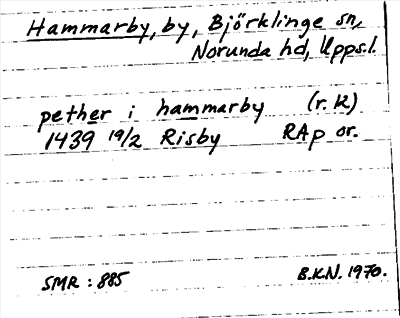 Hammarby, by, Björklinge sn,
Norunda hd, Upps.l.
pether i hammarby (r. k)
1439 19/2 Risby RAp or.
SMR : 885 B.K.N. 1970.